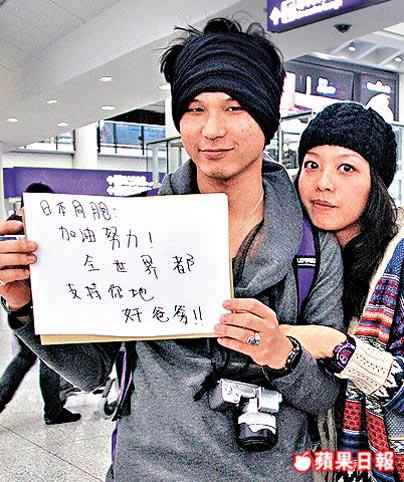 蘋果日報
日本同胞：
加油努力！
全世界都
支持你地
奸爸爹!!
蘋果日報